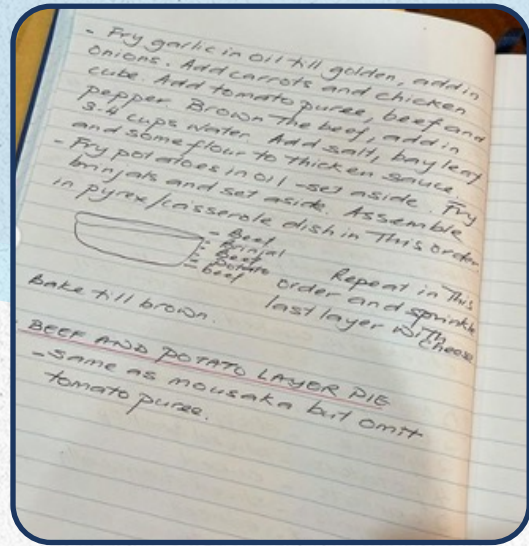 - Fry garlic in oil till golden, add in
onions. Add carrots and chicken
cube. Add tomato puree, beef and
pepper Brown the beef, add in
3-4 cups water. Add salt, bay leaf
and some flour to thicken sauce.
- Fry potatoes in oil - set aside. Fry
brinjals and set aside. Assemble
in pyrex/casserole dish in this order.
- Beef
- Brinjal
- Beef
- Potato
- beef
Repeat in this
order and sprinkle
last layer with
cheese
Bake till brown.
BEEF AND POTATO LAYER PIE
- Same as mousaka but omit
tomato puree.